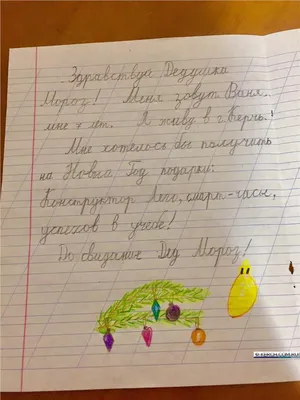 Здравствуй Дедушка
Мороз! Меня зовут Ваня.
мне 7 лет. Я живу в г. Керчь.!
Мне хотелось бы получить
на Новый Год подарки:
Конструктор Лего, смарт-часы,
успехов в учебе!
До свидания Дед Мороз!
© KERCH.COM.RU